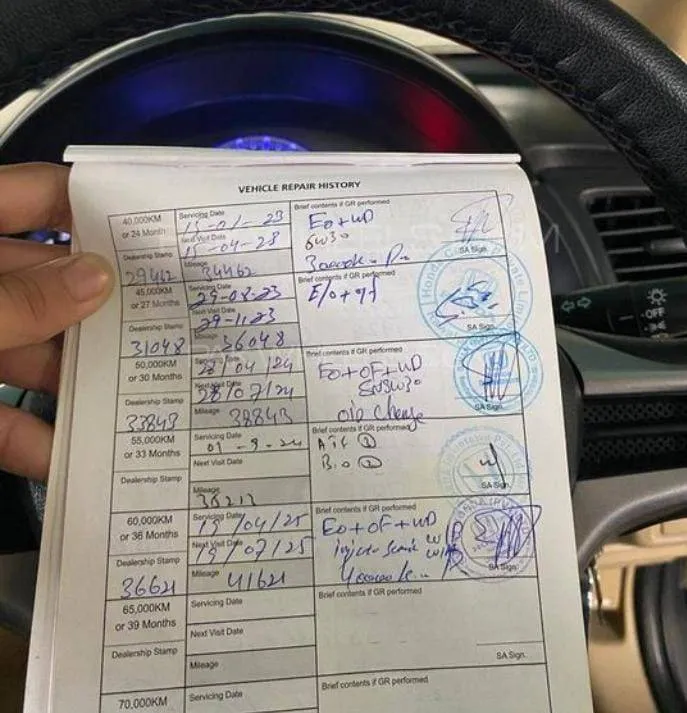 VEHICLE REPAIR HISTORY
40,000KM
or 24 Month
Servicing Date
13-01-23
Next Visit Date
15-04-23
Dealership Stamp
29462
Mileage
34462
Brief contents if GR performed
EO+WD
5W30
SA Sign.
45,000KM
or 27 Months
Servicing Date
29-08-23
Next Visit Date
29-11-23
Dealership Stamp
31048
Mileage
36048
Brief contents if GR performed
E/o+of
SA Sign.
50,000KM
or 30 Months
Servicing Date
28/04/24
Next Visit Date
28/07/24
Dealership Stamp
33843
Mileage
38843
Brief contents if GR performed
EO+OF+WD
SN5W30
oil change
SA Sign.
55,000KM
or 33 Months
Servicing Date
01-9-24
Next Visit Date
Dealership Stamp
Mileage
36213
Brief contents if GR performed
SA Sign.
60,000KM
or 36 Months
Servicing Date
19/04/25
Next Visit Date
19/07/25
Dealership Stamp
36621
Mileage
41621
Brief contents if GR performed
EO+OF+WD
SA Sign.
65,000KM
or 39 Months
Servicing Date
Next Visit Date
Dealership Stamp
Mileage
Brief contents if GR performed
SA Sign.
70,000KM
Servicing Date
Brief contents if GR performed
OFF